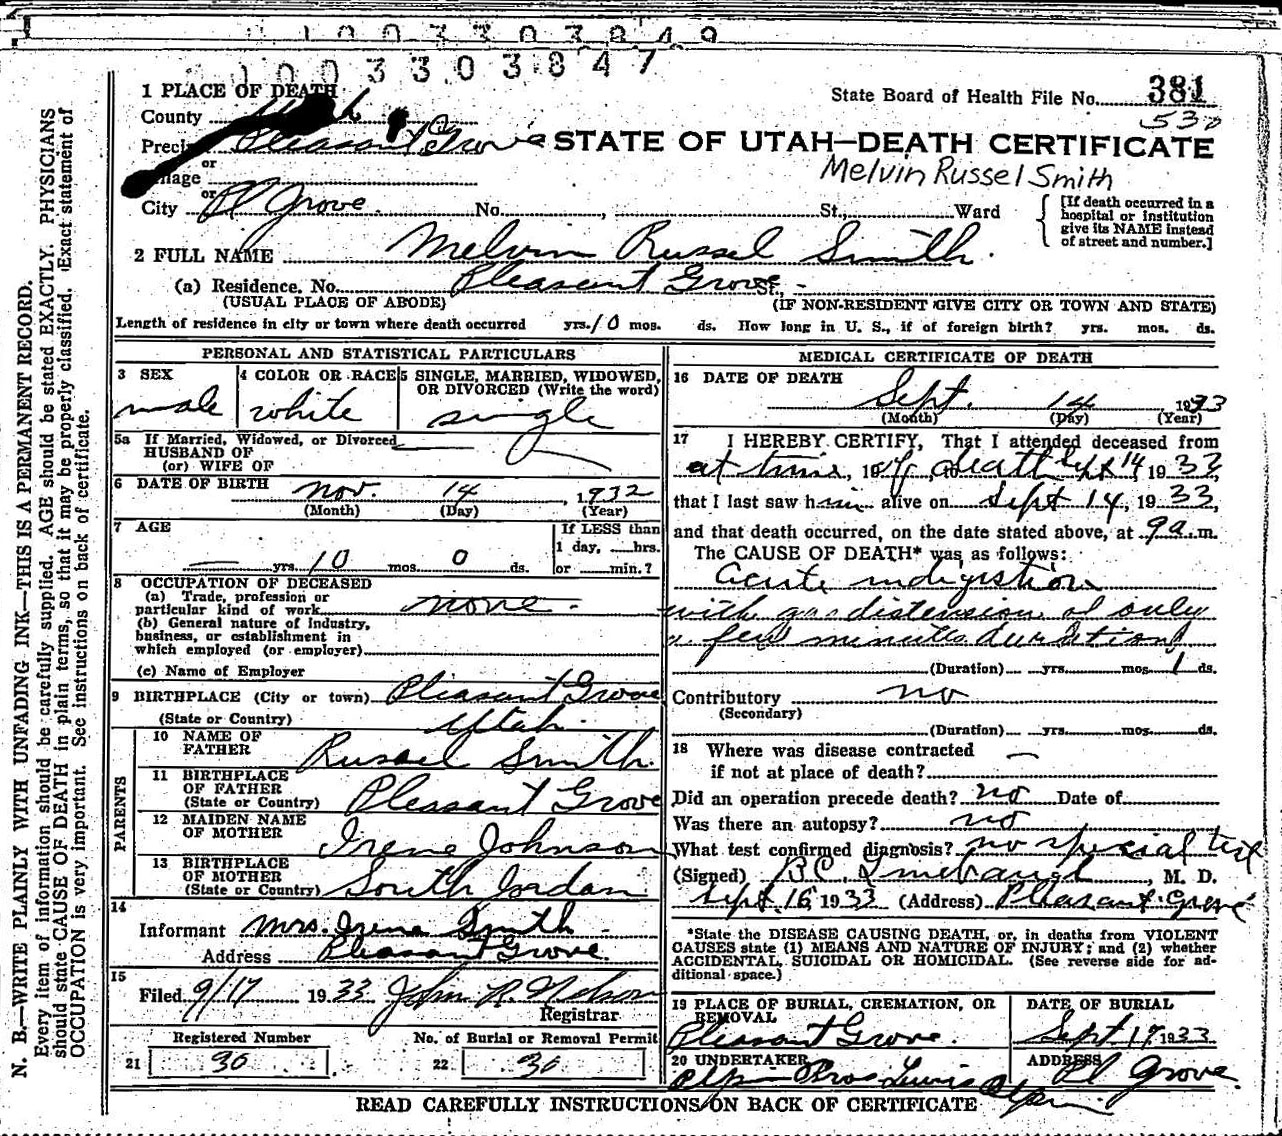 1003303849
1003303847
1 PLACE OF DEATH
County
State Board of Health File No. 381
530
Pleasant Grove
STATE OF UTAH—DEATH CERTIFICATE
or
Melvin Russel Smith
or
City Pl Grove No. , St., Ward
[If death occurred in a hospital or institution give its NAME instead of street and number.]
2 FULL NAME Melvin Russel Smith.
(a) Residence. No. Pleasant Grove St.,
(USUAL PLACE OF ABODE) (IF NON-RESIDENT GIVE CITY OR TOWN AND STATE)
Length of residence in city or town where death occurred yrs. 10 mos. ds. How long in U. S., if of foreign birth? yrs. mos. ds.
PERSONAL AND STATISTICAL PARTICULARS
3 SEX
male
4 COLOR OR RACE
white
5 SINGLE, MARRIED, WIDOWED,
OR DIVORCED (Write the word)
single
5a If Married, Widowed, or Divorced
HUSBAND OF
(or) WIFE OF
6 DATE OF BIRTH Nov. 14, 1932
(Month) (Day) (Year)
7 AGE
— yrs. 10 mos. 0 ds.
If LESS than
1 day, hrs.
or min.?
8 OCCUPATION OF DECEASED
(a) Trade, profession or
particular kind of work none.
(b) General nature of industry,
business, or establishment in
which employed (or employer)
(c) Name of Employer
9 BIRTHPLACE (City or town) Pleasant Grove
(State or Country) Utah.
PARENTS
10 NAME OF
FATHER Russel Smith.
11 BIRTHPLACE
OF FATHER
(State or Country) Pleasant Grove
12 MAIDEN NAME
OF MOTHER Irene Johnson
13 BIRTHPLACE
OF MOTHER
(State or Country) South Jordan
14
Informant Mrs. Irene Smith
Address Pleasant Grove.
15
Filed 9/17 1933 John R. Nelson
Registrar
Registered Number No. of Burial or Removal Permit
21 30 22 30
MEDICAL CERTIFICATE OF DEATH
16 DATE OF DEATH
Sept. 14 1933
(Month) (Day) (Year)
17 I HEREBY CERTIFY, That I attended deceased from
at time, 19 of, to death Sept 14 1933,
that I last saw him alive on Sept 14, 1933,
and that death occurred, on the date stated above, at 9 a.m.
The CAUSE OF DEATH* was as follows:
Acute indigestion
with gas distension of only
a few minutes duration
(Duration) yrs. mos. 1 ds.
Contributory no
(Secondary)
(Duration) yrs. mos. ds.
18 Where was disease contracted —
if not at place of death?
Did an operation precede death? no Date of
Was there an autopsy? no
What test confirmed diagnosis? no special test
(Signed) , M. D.
Sept. 16, 1933 (Address) Pleasant Grove
*State the DISEASE CAUSING DEATH, or, in deaths from VIOLENT
CAUSES state (1) MEANS AND NATURE OF INJURY; and (2) whether
ACCIDENTAL, SUICIDAL OR HOMICIDAL. (See reverse side for ad-
ditional space.)
19 PLACE OF BURIAL, CREMATION, OR
REMOVAL
Pleasant Grove.
DATE OF BURIAL
Sept 17 1933
20 UNDERTAKER
Olpin Bros Lewis Olpin.
ADDRESS
Pl Grove.
READ CAREFULLY INSTRUCTIONS ON BACK OF CERTIFICATE
N. B.—WRITE PLAINLY WITH UNFADING INK—THIS IS A PERMANENT RECORD.
Every item of information should be carefully supplied. AGE should be stated EXACTLY. PHYSICIANS
should state CAUSE OF DEATH in plain terms, so that it may be properly classified. Exact statement of
OCCUPATION is very important. See instructions on back of certificate.